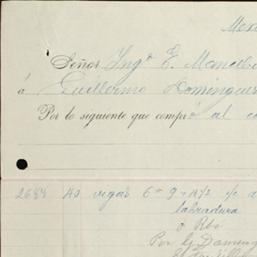 Mexi
Señor Ing° E. Mancebo
á Guillermo Dominguez
Por lo siguiente que compró al co
2688 40 vigas 6 9 c/c a
labradura
o Rbo
Por G. Doming